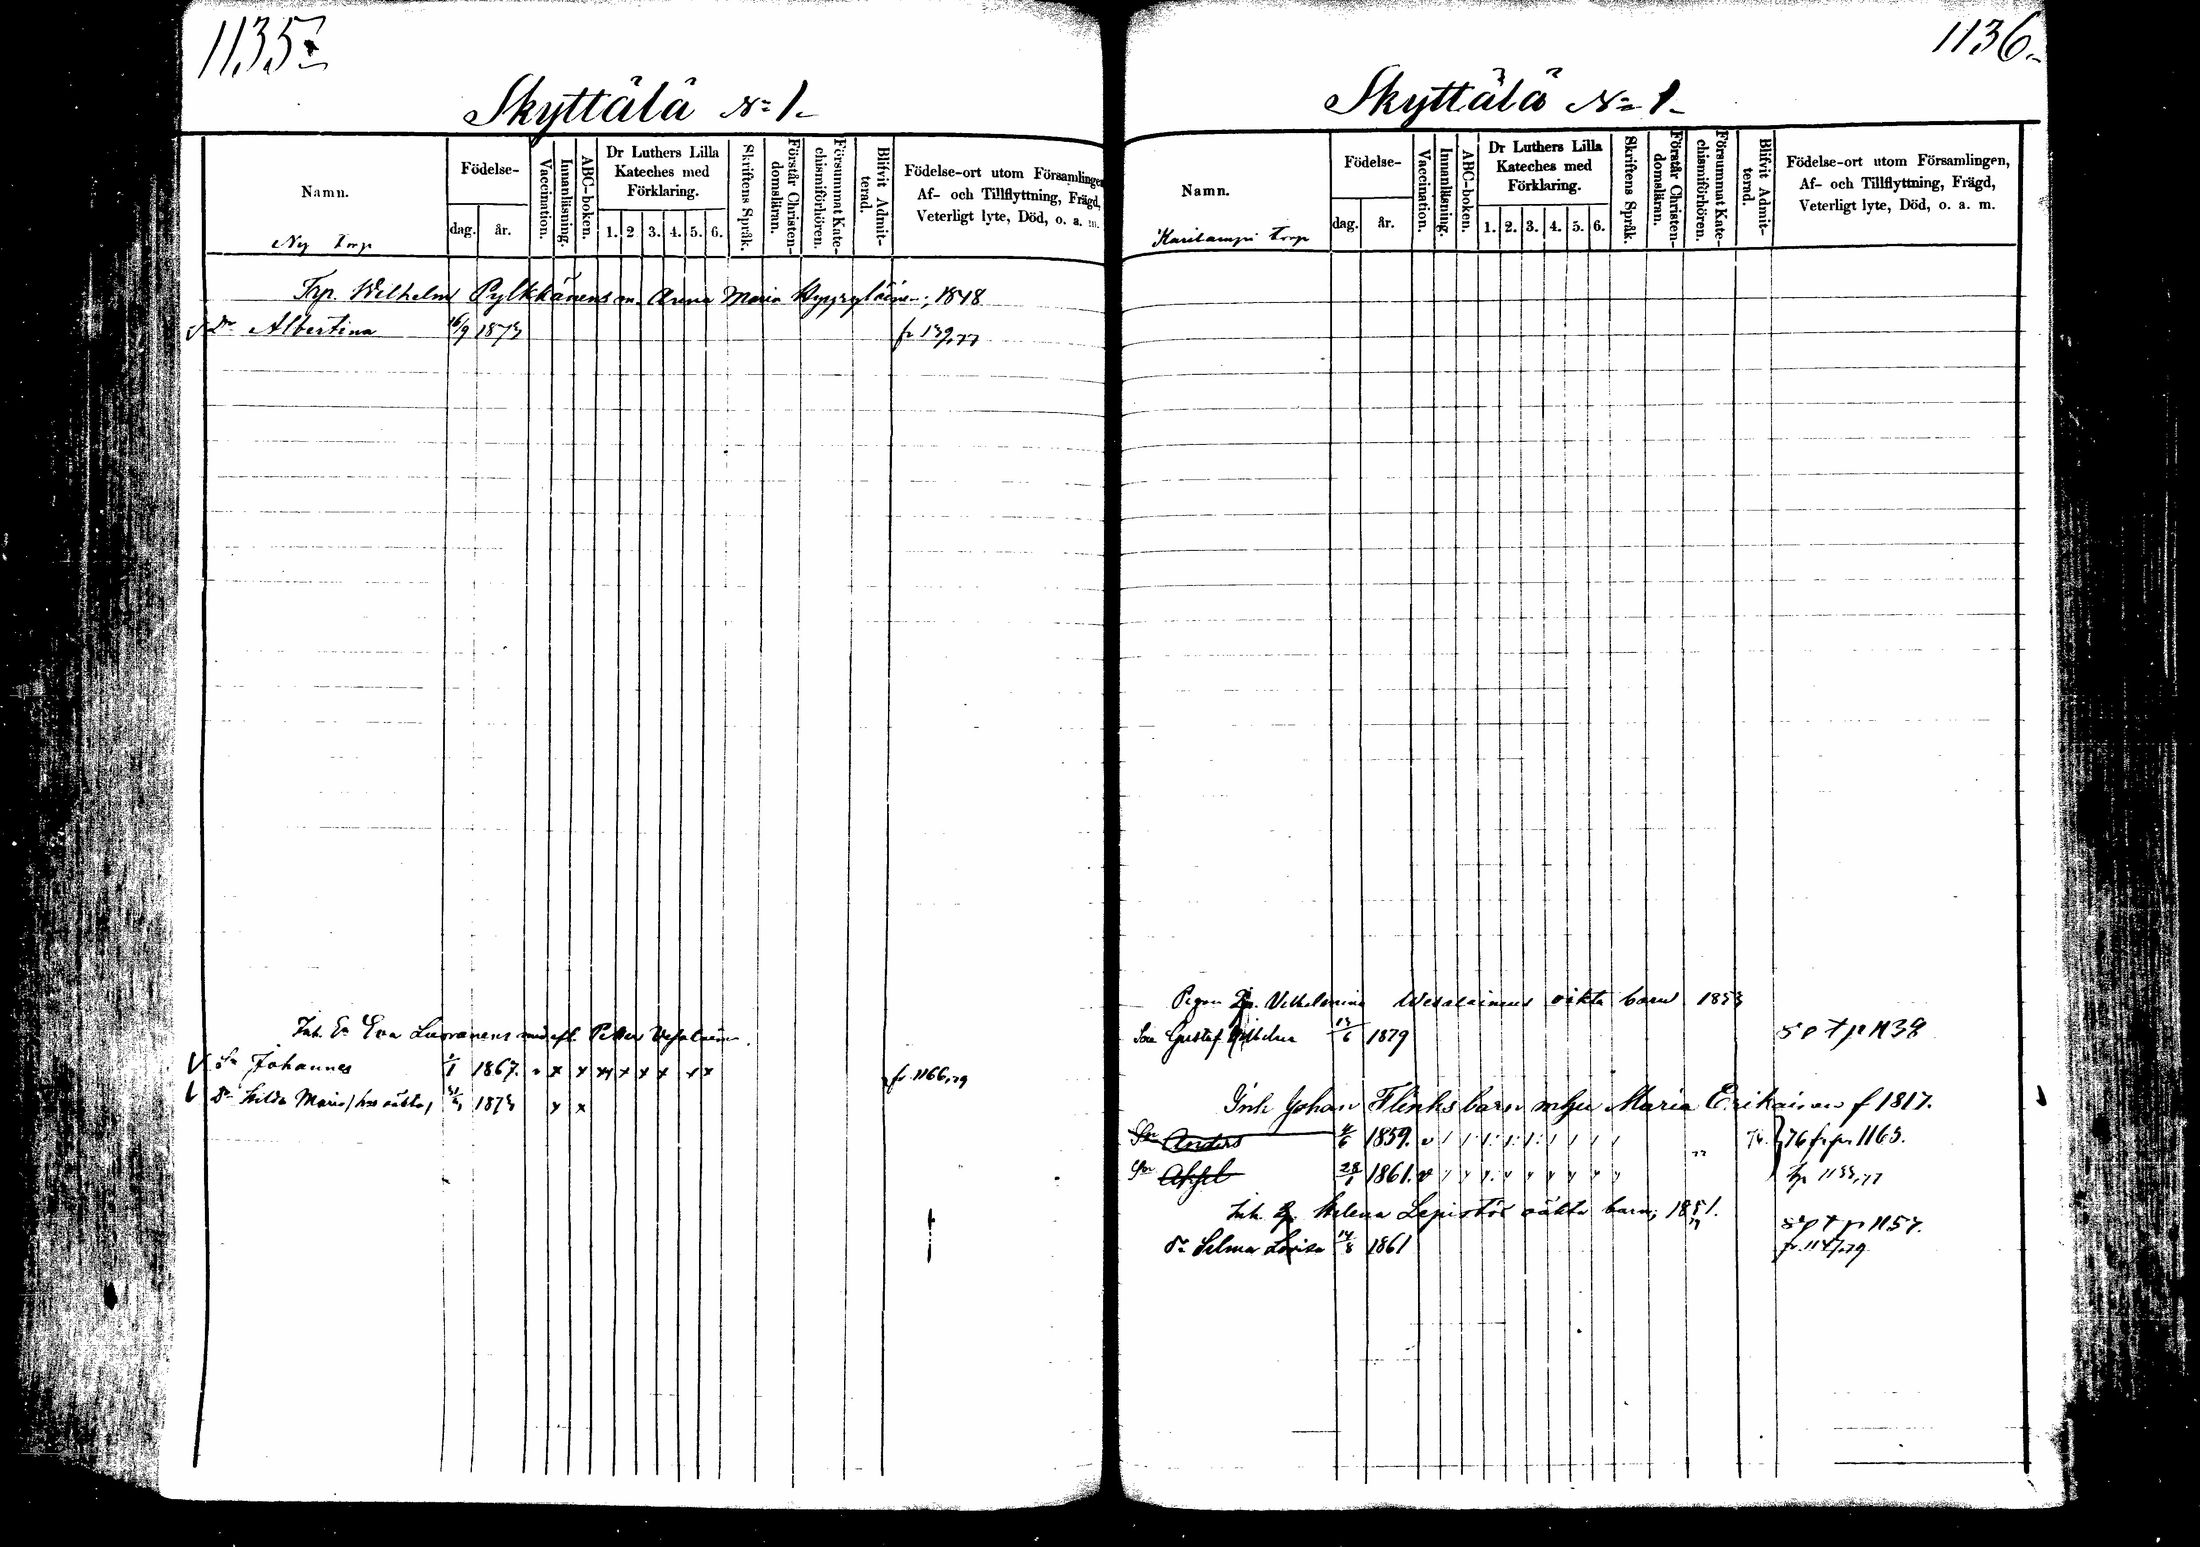 1135
Skyttälä No 1
Namn.
Födelse-
dag.
år.
Vaccination.
Innanläsning.
ABC-boken.
Dr Luthers Lilla
Kateches med
Förklaring.
1. 2 3. 4. 5. 6.
Skriftens Språk.
Förstår Christen-
domsläran.
Försummat Kate-
chismiförhören.
Blifvit Admit-
terad.
Födelse-ort utom Församlingen
Af- och Tillflyttning, Frägd,
Veterligt lyte, Död, o. a. m.
Ny torp
Trp. Wilhelm Pylkkänens m. Anna Maria, 1848
Dr Albertina 16/9 1873 fr 139,77
Inh. Er Eva Luoranens med afl. Petter
Sn Johannes 1/1 1867. x x x x x x x x fr. 1166,79
Dr Hilda Maria 1873 x x
1136.
Skyttälä No 1
Namn.
Födelse-
dag.
år.
Vaccination.
Innanläsning.
ABC-boken.
Dr Luthers Lilla
Kateches med
Förklaring.
1. 2. 3. 4. 5. 6.
Skriftens Språk.
Förstår Christen-
domsläran.
Försummat Kate-
chismiförhören.
Blifvit Admit-
terad.
Födelse-ort utom Församlingen,
Af- och Tillflyttning, Frägd,
Veterligt lyte, Död, o. a. m.
Karilampi torp
Pigan Vilhelmina oäkta barn 1853
Son Gustaf 13/6 1879 s p † p 1138
Inh Johan Flinks barn m hu Maria Erikainen f 1817.
Son Anders 4/6 1859. 76 fr pn 1165.
Son Axel 28/1 1861. 1133,77
Inh. Helena Lepistös oäkta barn, 1851. s p † p 1157.
Dr Selma Lovisa 14/8 1861 fr. 1147,79